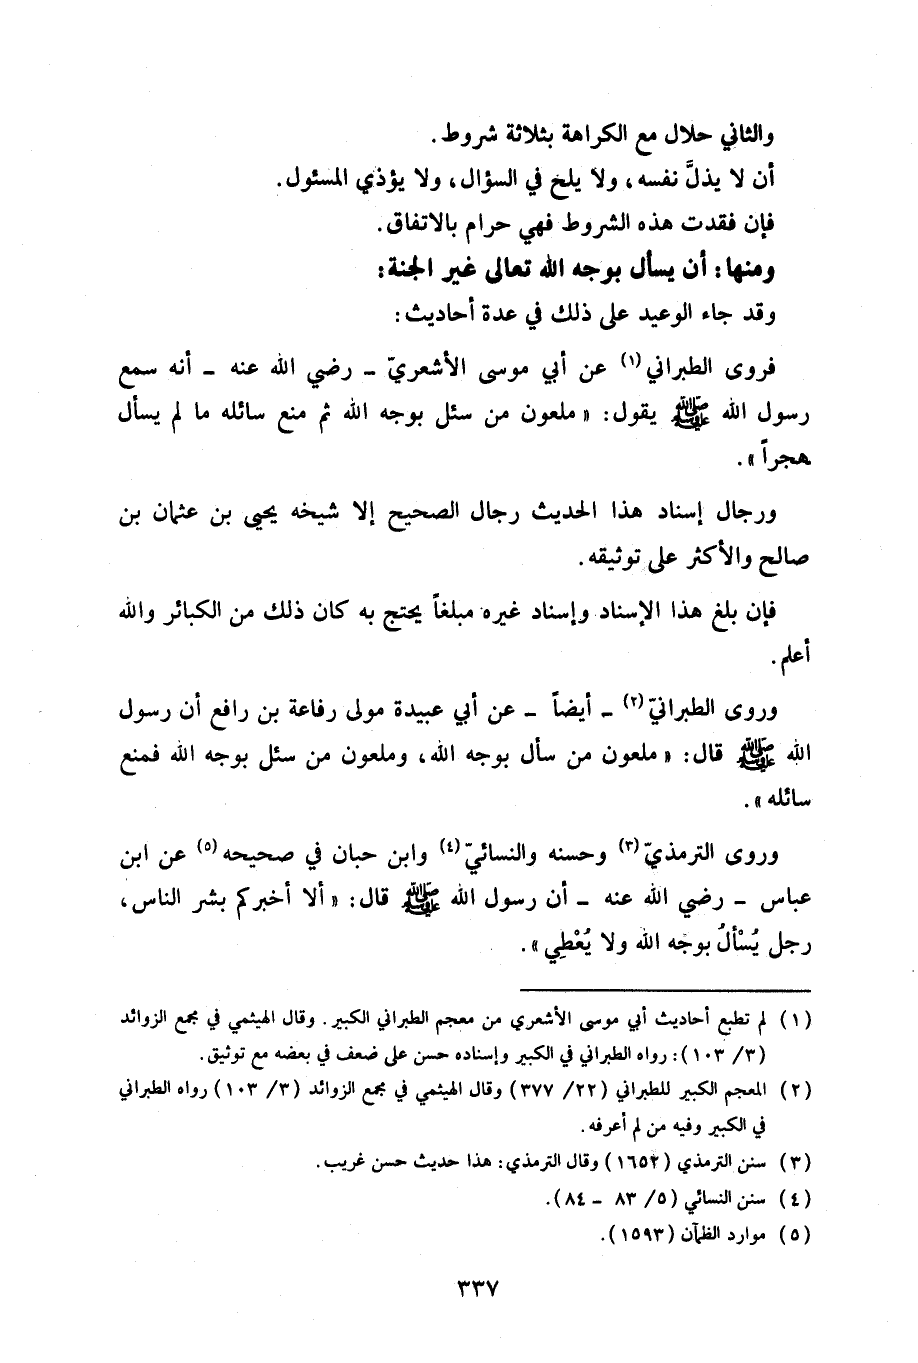 والثاني حلال مع الكراهة بثلاثة شروط.
أن لا يذلَّ نفسه، ولا يلح في السؤال، ولا يؤذي المسئول.
فإن فقدت هذه الشروط فهي حرام بالاتفاق.
ومنها: أن يسأل بوجه الله تعالى غير الجنة:
وقد جاء الوعيد على ذلك في عدة أحاديث:
فروى الطبراني(١) عن أبي موسى الأشعريّ ـ رضي الله عنه ـ أنه سمع
رسول الله ﷺ يقول: «ملعون من سئل بوجه الله ثم منع سائله ما لم يسأل
هجراً».
ورجال إسناد هذا الحديث رجال الصحيح إلا شيخه يحيى بن عثمان بن
صالح والأكثر على توثيقه.
فإن بلغ هذا الإسناد وإسناد غيره مبلغاً يحتج به كان ذلك من الكبائر والله
أعلم.
وروى الطبرانيّ(٢) ـ أيضاً ـ عن أبي عبيدة مولى رفاعة بن رافع أن رسول
الله ﷺ قال: «ملعون من سأل بوجه الله، وملعون من سئل بوجه الله فمنع
سائله».
وروى الترمذيّ(٣) وحسنه والنسائيّ(٤) وابن حبان في صحيحه(٥) عن ابن
عباس ـ رضي الله عنه ـ أن رسول الله ﷺ قال: «ألا أخبركم بشر الناس،
رجل يُسْأَلُ بوجه الله ولا يُعْطِي».
(١) لم تطبع أحاديث أبي موسى الأشعري من معجم الطبراني الكبير. وقال الهيثمي في مجمع الزوائد
(٣/ ١٠٣): رواه الطبراني في الكبير وإسناده حسن على ضعف في بعضه مع توثيق.
(٢) المعجم الكبير للطبراني (٢٢/ ٣٧٧) وقال الهيثمي في مجمع الزوائد (٣/ ١٠٣) رواه الطبراني
في الكبير وفيه من لم أعرفه.
(٣) سنن الترمذي (١٦٥٢) وقال الترمذي: هذا حديث حسن غريب.
(٤) سنن النسائي (٥/ ٨٣ ـ ٨٤).
(٥) موارد الظمآن (١٥٩٣).
٣٣٧